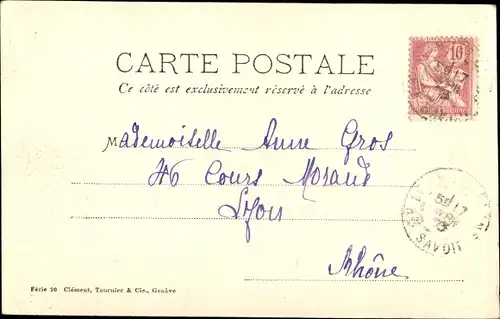 CARTE POSTALE
10
Ce côté est exclusivement réservé à l'adresse
Mademoiselle Anne Gros
46 Cours Morand
Lyon
Rhône
SAVOIE
Série 20 Clément, Tournier & Cie., Genève